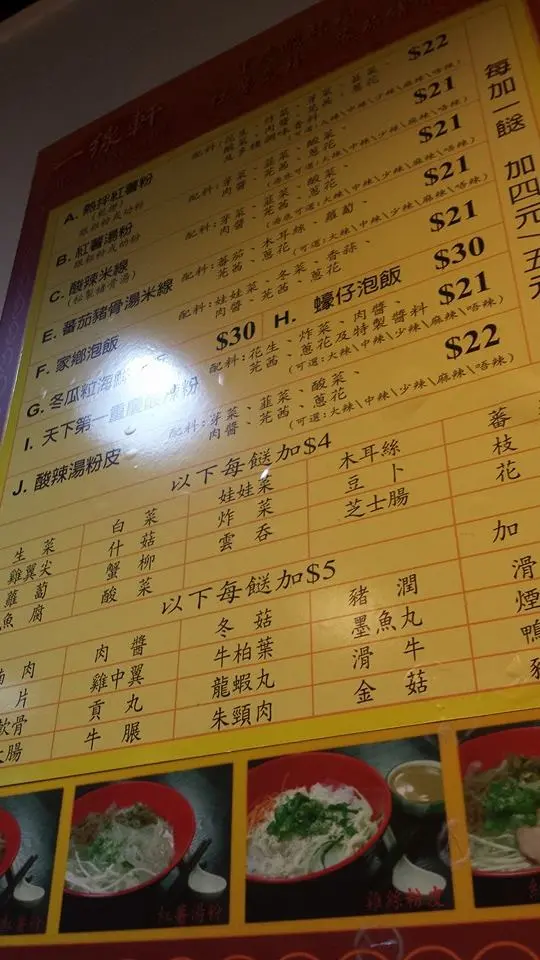 一緣軒
A. 熱拌紅薯粉
配料: 花生、炸菜、芽菜、韮菜、
酸菜、肉醬、芫茜、蔥花
及多種調味香料
(可選:大辣\中辣\少辣\麻辣\唔辣)
$22
B. 紅薯湯粉
配料: 芽菜、韮菜、酸菜、
肉醬、芫茜、蔥花
$21
C. 酸辣米線
(秘製豬骨湯)
配料: 芽菜、韮菜、酸菜、
肉醬、芫茜、蔥花
$21
E. 蕃茄豬骨湯米線
配料: 蕃茄、木耳絲、蘿蔔、
芫茜、蔥花
(可選:大辣\中辣\少辣\麻辣\唔辣)
$21
F. 家鄉泡飯
配料: 娃娃菜、冬菜、香蒜、
肉醬、芫茜、蔥花
$21
G. 冬瓜粒海鮮
$30
H. 蠔仔泡飯
$30
I. 天下第一
配料: 花生、炸菜、肉醬、
芫茜、蔥花及特製醬料
(可選:大辣\中辣\少辣\麻辣\唔辣)
$21
J. 酸辣湯粉皮
配料: 芽菜、韮菜、酸菜、
肉醬、芫茜、蔥花
(可選:大辣\中辣\少辣\麻辣\唔辣)
$22
每加一餸 加四元\五元
以下每餸加$4
生菜 白菜 娃娃菜 木耳絲 蕃
雞翼尖 什菇 炸菜 豆卜 枝
蘿蔔 蟹柳 雲吞 芝士腸 花
魚腐 酸菜
以下每餸加$5
加
肉 肉醬 冬菇 豬潤 滑
片 雞中翼 牛柏葉 墨魚丸 煙
軟骨 貢丸 龍蝦丸 滑牛 鴨
腸 牛𦟌 朱頸肉 金菇 豬
紅薯湯粉
雞絲粉皮